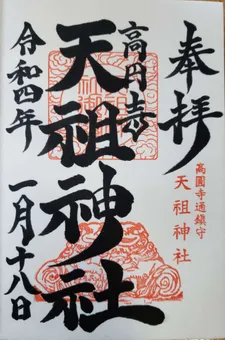 奉拝
高圓寺通鎮守
天祖神社
高円寺
天祖神社
令和四年
一月十八日